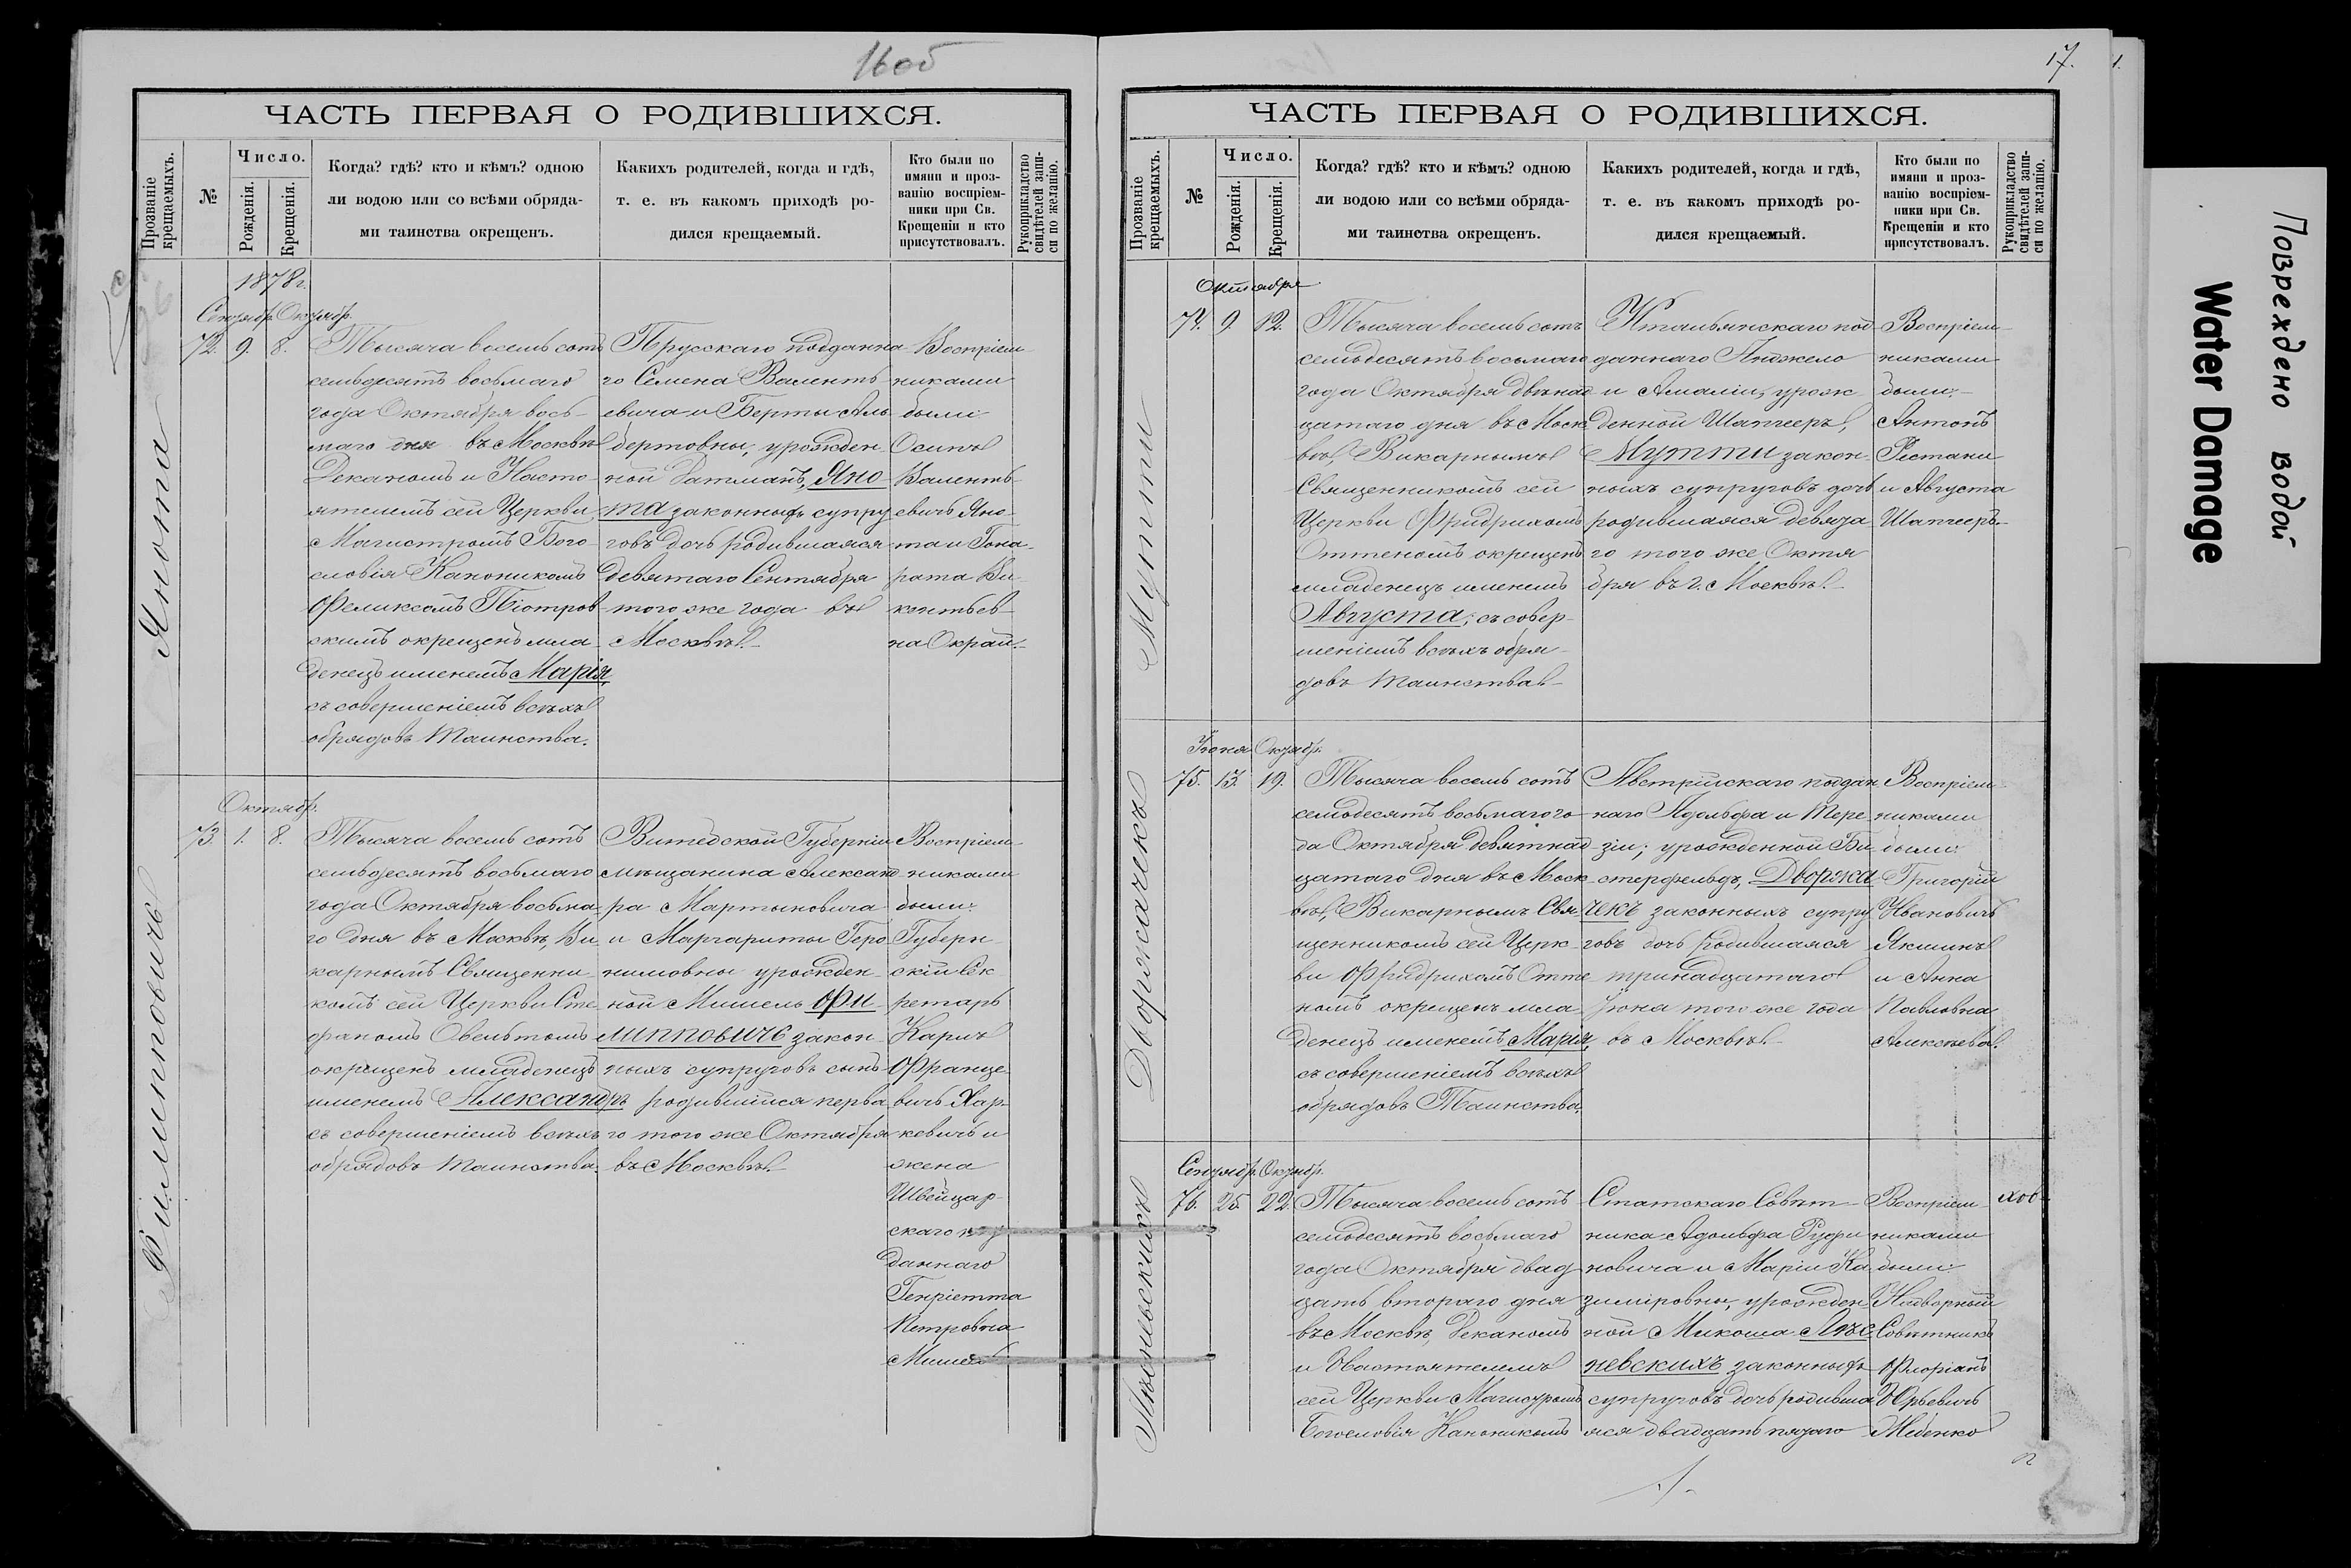 16об
ЧАСТЬ ПЕРВАЯ О РОДИВШИХСЯ.
Прозваніе крещаемыхъ.
№
Число.
Рожденія.
Крещенія.
Когда? гдѣ? кто и кѣмъ? одною
ли водою или со всѣми обряда-
ми таинства окрещенъ.
Какихъ родителей, когда и гдѣ,
т. е. въ какомъ приходѣ ро-
дился крещаемый.
Кто были по
имяни и проз-
ванію воспріем-
ники при Св.
Крещеніи и кто
присутствовалъ.
Рукоприкладство
свидѣтелей запи-
си по желанію.
1878г.
Сентябр. Октябр.
Янота
72. 9. 8.
Тысяча восемь сотъ
семьдесятъ восьмаго
года Октября вось-
маго дня въ Москвѣ
Деканомъ и Насто-
ятелемъ сей Церкви
Магистромъ Бого-
словія Каноникомъ
Феликсомъ Піотров-
скимъ окрещенъ мла-
денецъ именемъ Марія,
съ совершеніемъ всѣхъ
обрядовъ таинства.
Прусскаго подданна-
го Семена Валенть-
евича и Берты Аль-
бертовны, урожден-
ной Батманъ, Яно-
та законныхъ супру-
говъ дочь родившаяся
девятаго Сентября
того же года въ
Москвѣ.
Воспріем-
никами
были:
Осипъ
Валенть-
евичъ Яно-
та и Гона-
рата Ви-
кентьев-
на Окрай.
Октябр.
Филипповичъ
73. 1. 8.
Тысяча восемь сотъ
семьдесятъ восьмаго
года Октября восьма-
го дня въ Москвѣ, Ви-
карнымъ Священни-
комъ сей Церкви Сте-
фаномъ Овельтомъ
окрещенъ младенецъ
именемъ Александръ
съ совершеніемъ всѣхъ
обрядовъ таинства.
Витебской Губерніи
мѣщанина Александ-
ра Мартыновича
и Маргариты Геро-
нимовны урожден-
ной Мишель Фи-
липповичъ закон-
ныхъ супруговъ сынъ
родившійся перва-
го того же Октября
въ Москвѣ.
Воспріем-
никами
были:
Губерн-
скій Сек-
ретарь
Карлъ
Франце-
вичъ Хар-
кевичъ и
жена
Швейцар-
скаго под-
даннаго
Генріетта
Петровна
Мишель
17.
ЧАСТЬ ПЕРВАЯ О РОДИВШИХСЯ.
Прозваніе крещаемыхъ.
№
Число.
Рожденія.
Крещенія.
Когда? гдѣ? кто и кѣмъ? одною
ли водою или со всѣми обряда-
ми таинства окрещенъ.
Какихъ родителей, когда и гдѣ,
т. е. въ какомъ приходѣ ро-
дился крещаемый.
Кто были по
имяни и проз-
ванію воспріем-
ники при Св.
Крещеніи и кто
присутствовалъ.
Рукоприкладство
свидѣтелей запи-
си по желанію.
Октября
Мутти
74. 9. 12.
Тысяча восемь сотъ
семьдесятъ восьмаго
года Октября двѣнад-
цатаго дня въ Моск-
вѣ, Викарнымъ
Священникомъ сей
Церкви Фридрихомъ
Оттеномъ окрещенъ
младенецъ именемъ
Августа, съ совер-
шеніемъ всѣхъ обря-
довъ таинства.
Итальянскаго под-
даннаго Анджело
и Амаліи, урож-
денной Шатееръ,
Мутти закон-
ныхъ супруговъ дочь
родившаяся девята-
го того же Октя-
бря въ г. Москвѣ.
Воспріем-
никами
были:
Антонъ
Рестани
и Августа
Шатееръ.
Іюня Октябр.
Дворжачекъ
75. 13. 19.
Тысяча восемь сотъ
семьдесятъ восьмаго го-
да Октября девятнад-
цатаго дня въ Моск-
вѣ, Викарнымъ Свя-
щенникомъ сей Церк-
ви Фридрихомъ Отте-
номъ окрещенъ мла-
денецъ именемъ Марія,
съ совершеніемъ всѣхъ
обрядовъ Таинства.
Австрійскаго поддан-
наго Адольфа и Тере-
зіи, урожденной Би-
стерфельдъ, Дворжа-
чекъ законныхъ супру-
говъ дочь родившаяся
тринадцатаго
Іюня того же года
въ Москвѣ.
Воспріем-
никами
были:
Григорій
Ивановичъ
Якминъ
и Анна
Павловна
Алексѣева.
Сентябр. Октябр.
76. 25. 22.
Тысяча восемь сотъ
семьдесятъ восьмаго
года Октября двад-
цать втораго дня
въ Москвѣ, Деканомъ
и Настоятелемъ
сей Церкви Магистромъ
Богословія Каноникомъ
Статскаго Совѣт-
ника Адольфа Руфи-
новича и Маріи Ка-
зиміровны, урожден-
ной Микоша
невскихъ законныхъ
супруговъ дочь родивша-
яся двадцать пятаго
Воспріем-
никами
были:
Надворный
Совѣтникъ
Флоріанъ
Юрьевичъ
Повреждено водой
Water Damage